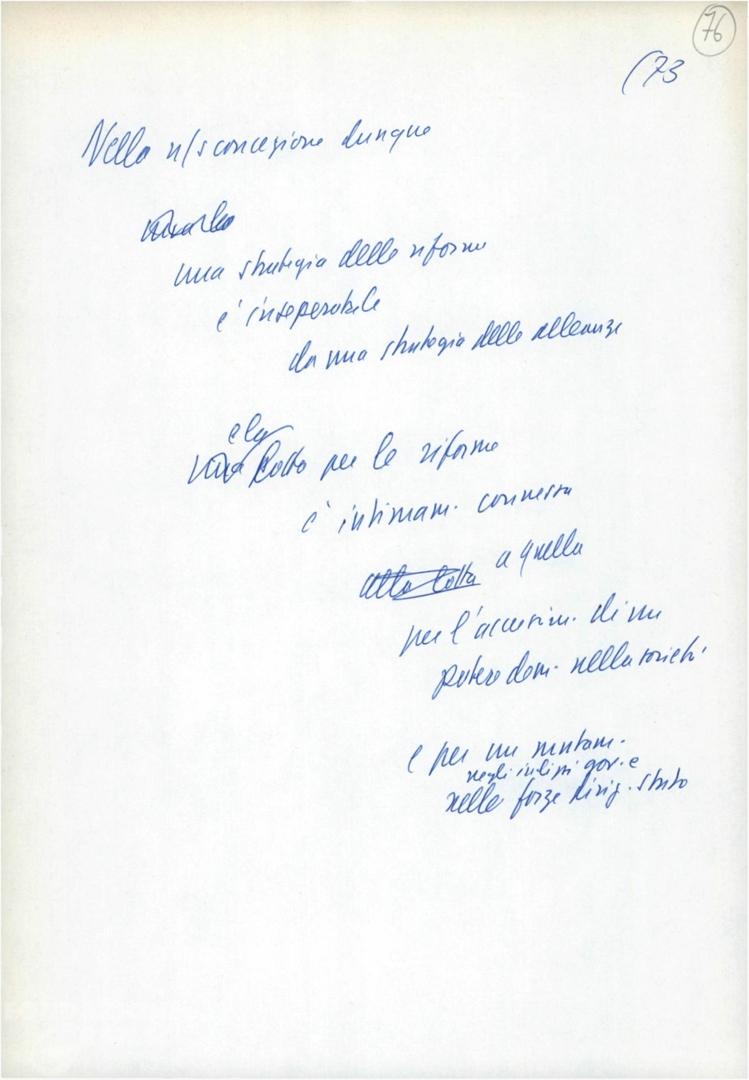 76
(73
Nella n/s concezione dunque
una strategia delle riforme
è inseparabile
da una strategia delle alleanze
e la
lotta per le riforme
è intimam. connessa
alla lotta a quella
per l'accession. di un
potere dem. nella società
e per un mutam.
negli indirizzi gov. e
nelle forze dirig. Stato